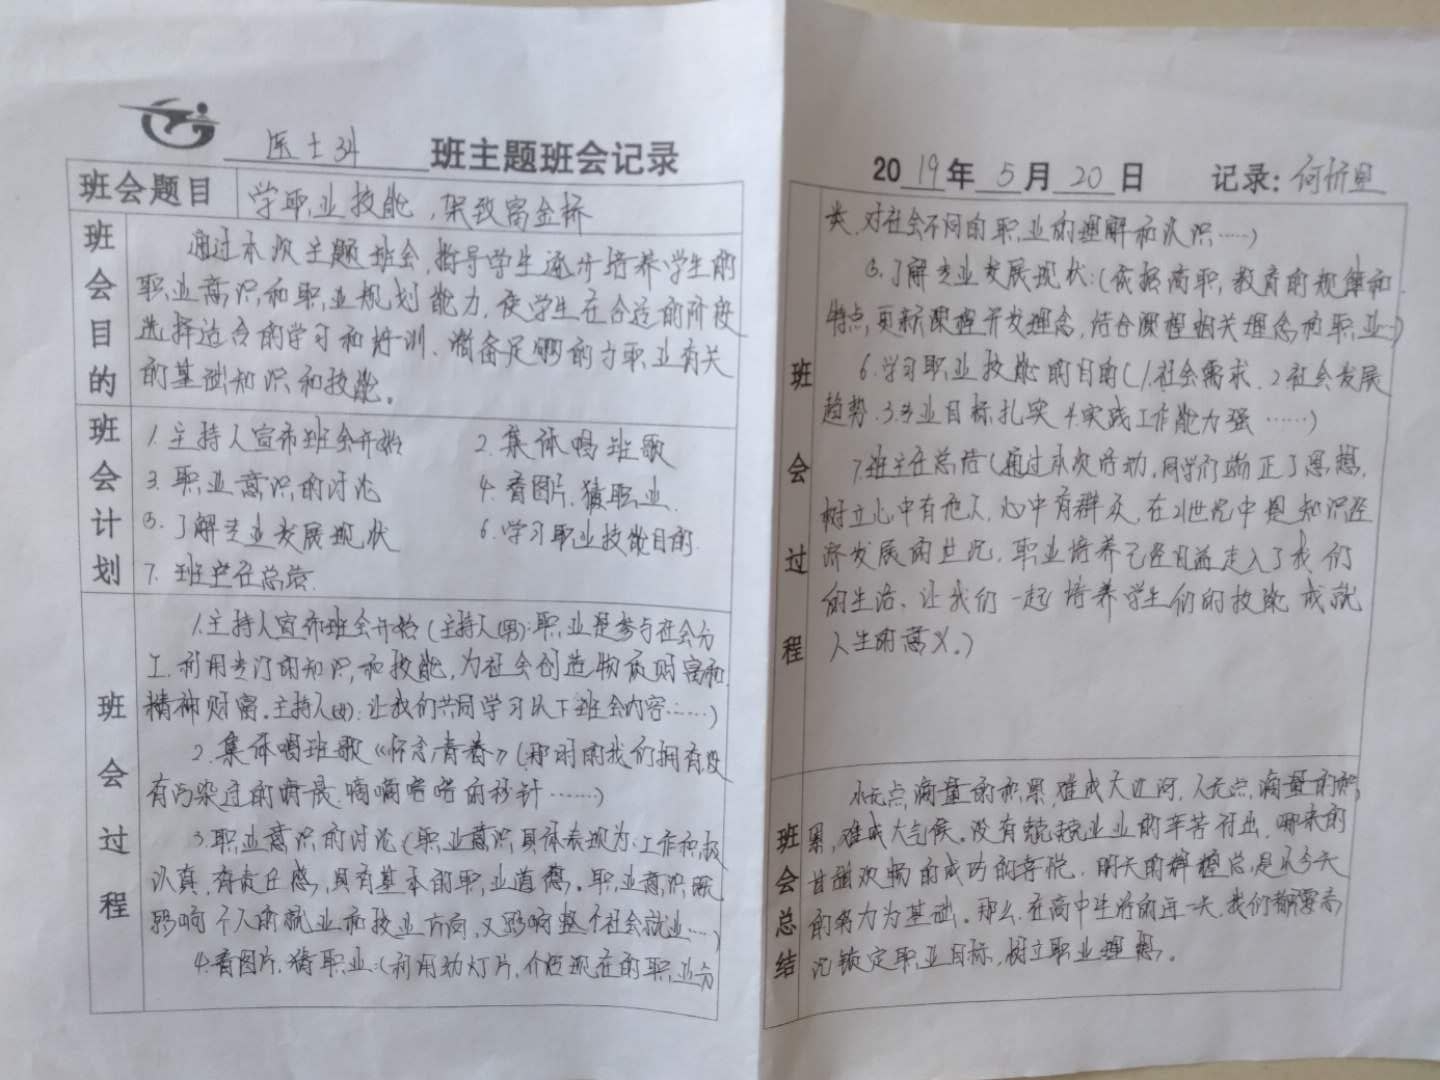 医士34 班主题班会记录
班会题目 学职业技能，架致富金桥
班会目的
通过本次主题班会，指导学生逐步培养学生的
职业意识和职业规划能力，使学生在合适的阶段
选择适合的学习和培训、准备足够的与职业有关
的基础知识和技能。
班会计划
1. 主持人宣布班会开始 2. 集体唱班歌
3. 职业意识的讨论 4. 看图片，猜职业.
⑤. 了解专业发展现状 6. 学习职业技能目的.
7. 班主任总结.
班会过程
1.主持人宣布班会开始(主持人(男):职业是参与社会分
工.利用专门的知识和技能,为社会创造物质财富和
精神财富.主持人(田):让我们共同学习以下班会内容……)
2.集体唱班歌《怀念青春》(那时的我们拥有没
有污染过的晴晨.嘀嘀嗒嗒的秒针……)
3.职业意识的讨论(职业意识具体表现为:工作积极
认真,有责任感,具有基本的职业道德。职业意识既
影响个人的就业和择业方向,又影响整个社会就业…)
4.看图片,猜职业:(利用幻灯片,介绍现在的职业分
2019年5月20日 记录:
班会过程
类.对社会不同的职业的理解和认识……)
⑤.了解专业发展现状:(依据高职,教育的规律和
特点,更新课程开发理念,结合课程相关理念和职业…)
6.学习职业技能的目的(1.社会需求.2社会发展
趋势.3专业目标扎实 4.实践工作能力强……)
7.班主任总结(通过本次活动,同学们端正了思想,
树立心中有他人,心中有群众,在21世纪中是知识经
济发展的世纪,职业培养已经日益走入了我们
的生活.让我们一起培养学生们的技能 成就
人生的意义.)
班会总结
水无点滴量的积累,难成大江河,人无点滴量的积
累,难成大气候。没有兢兢业业的辛苦付出,哪来的
甘甜欢畅的成功的喜悦.明天的辉煌总是从今天
的努力为基础。那么.在高中生活的每一天,我们都要
锁定职业目标,树立职业理想。